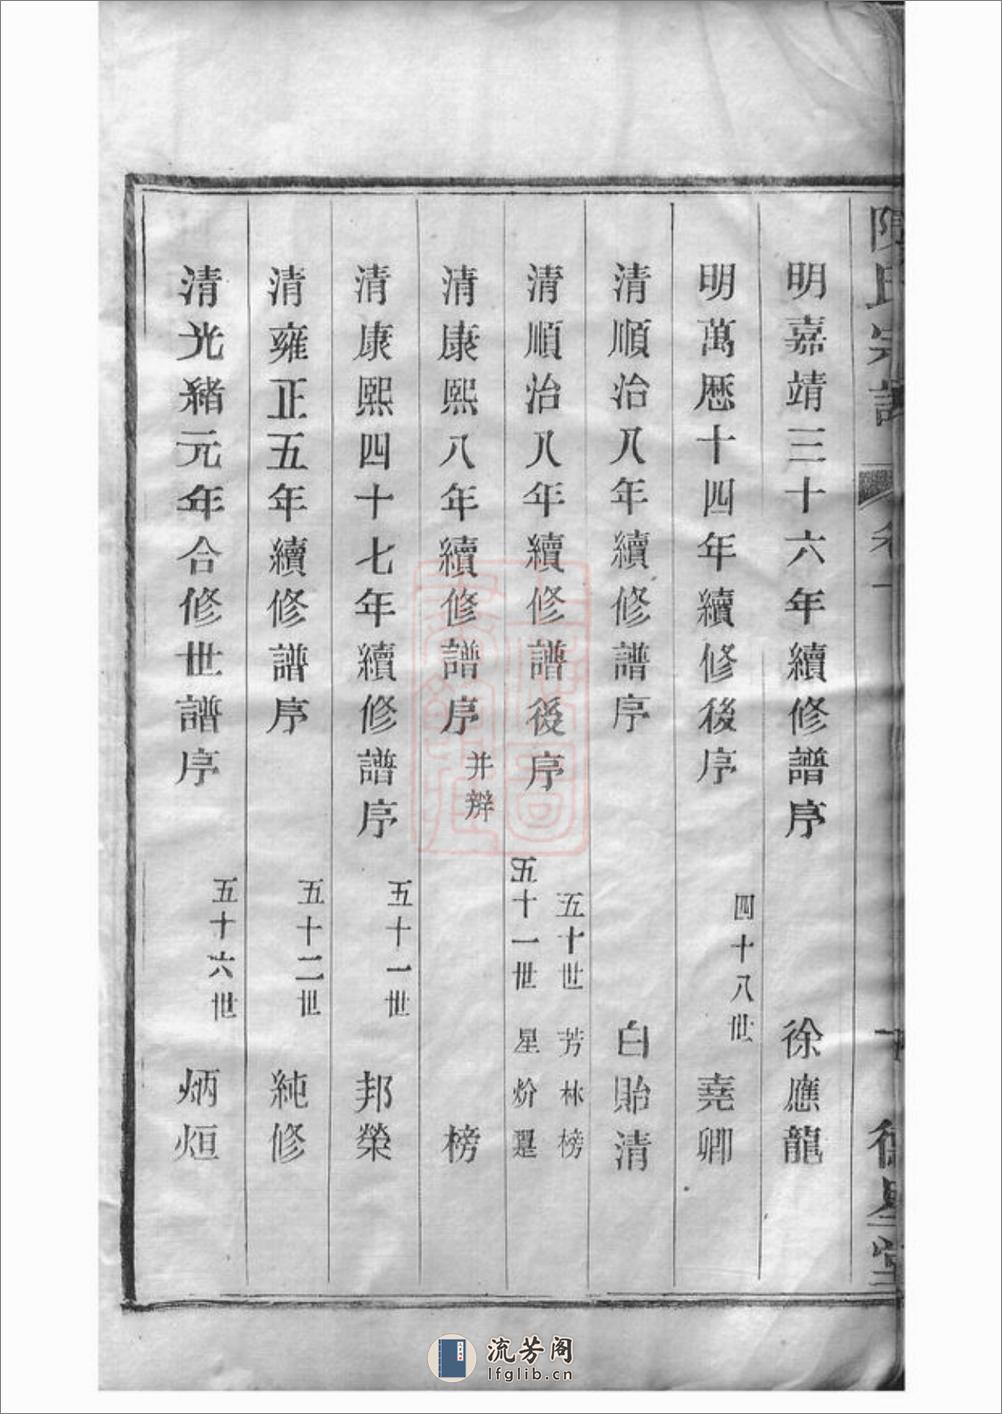 陳氏宗譜 卷一 德星堂
明嘉靖三十六年續修譜序 徐應龍
明萬曆十四年續修後序 四十八世 堯卿
清順治八年續修譜序 白貽清
清順治八年續修譜後序 五十世 芳林 榜
五十一世 星 炌
清康熙八年續修譜序 并辯 榜
清康熙四十七年續修譜序 五十一世 邦榮
清雍正五年續修譜序 五十二世 純修
清光緒元年合修世譜序 五十六世 炳烜
流芳阁
lfglib.cn